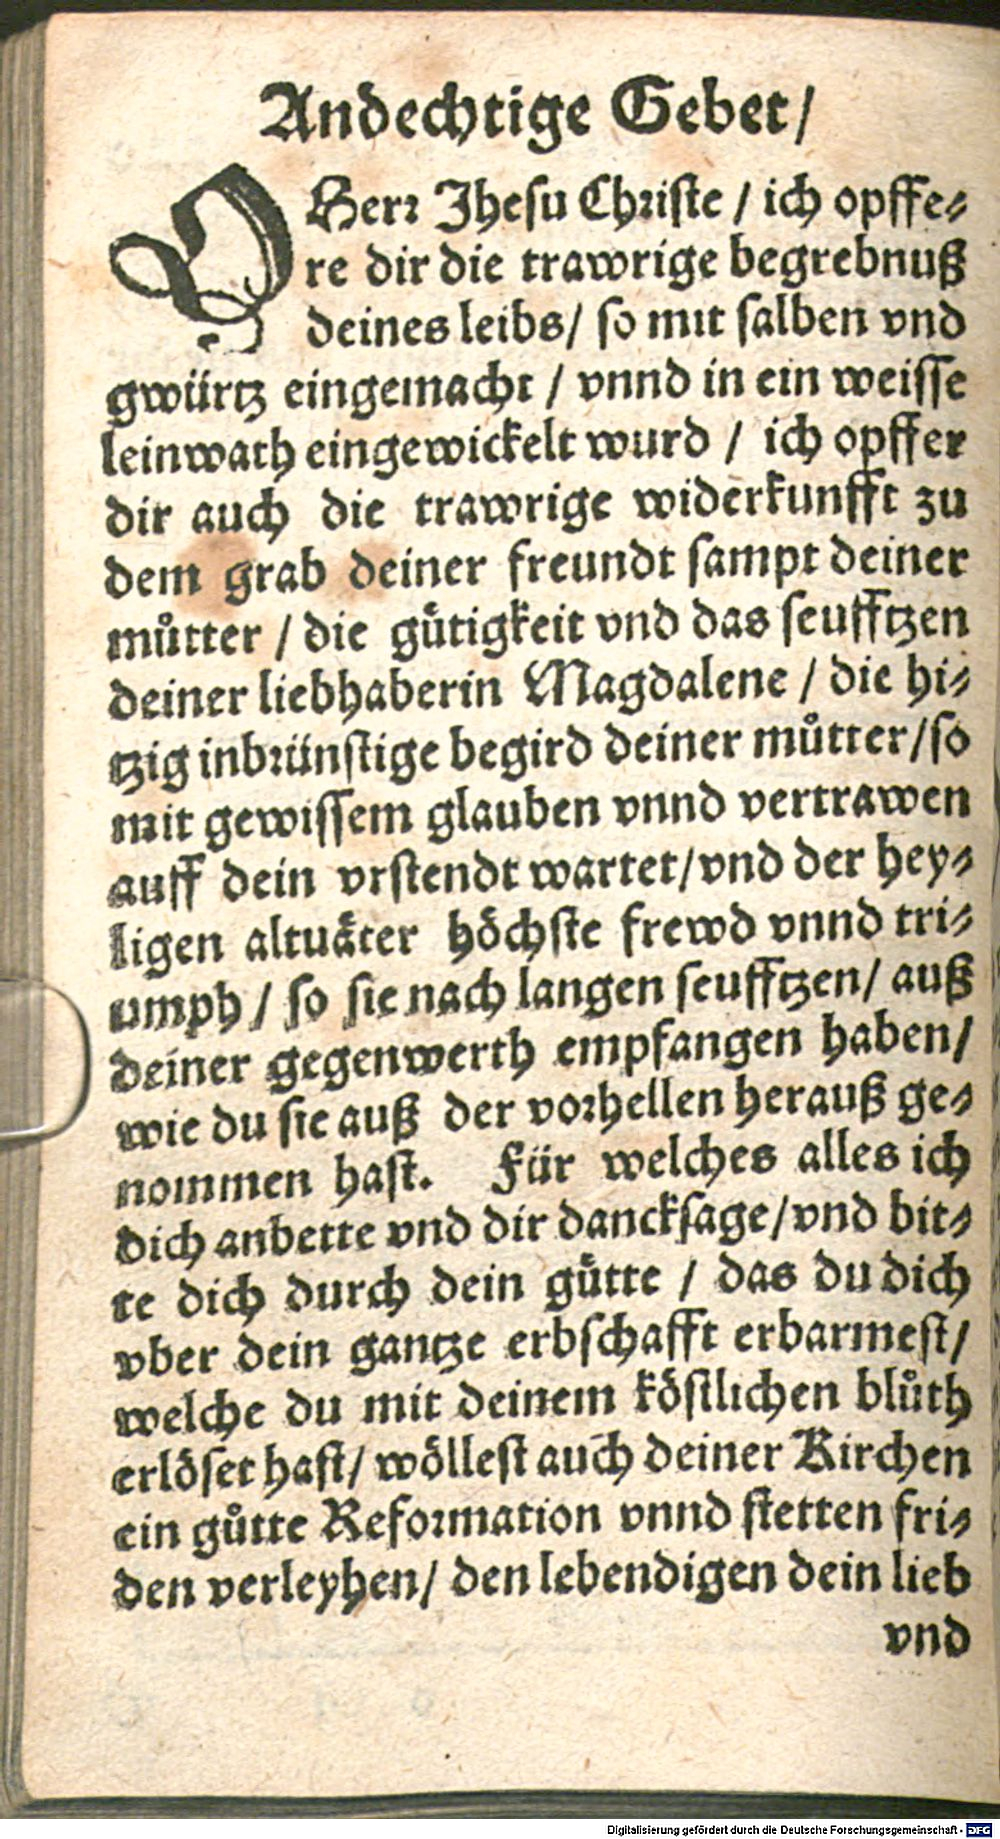 Andechtige Gebet/
O Herr Jhesu Christe / ich opffe-
re dir die trawrige begrebnuß
deines leibs/ so mit salben vnd
gwürtz eingemacht / vnnd in ein weisse
leinwath eingewickelt wurd / ich opffer
dir auch die trawrige widerkunfft zu
dem grab deiner freundt sampt deiner
můtter / die gütigkeit vnd das seufftzen
deiner liebhaberin Magdalene / die hi-
tzig inbrünstige begird deiner můtter/so
mit gewissem glauben vnnd vertrawen
auff dein vrstendt wartet/vnd der hey-
ligen altuäter höchste frewd vnnd tri-
umph / so sie nach langen seufftzen/ auß
deiner gegenwerth empfangen haben/
wie du sie auß der vorhellen herauß ge-
nommen hast. Für welches alles ich
dich anbette vnd dir dancksage/vnd bit-
te dich durch dein gütte / das du dich
vber dein gantze erbschafft erbarmest/
welche du mit deinem köstlichen blůth
erlöset hast/ wöllest auch deiner Kirchen
ein gůtte Reformation vnnd stetten fri-
den verleyhen/ den lebendigen dein lieb
vnd
Digitalisierung gefördert durch die Deutsche Forschungsgemeinschaft - DFG